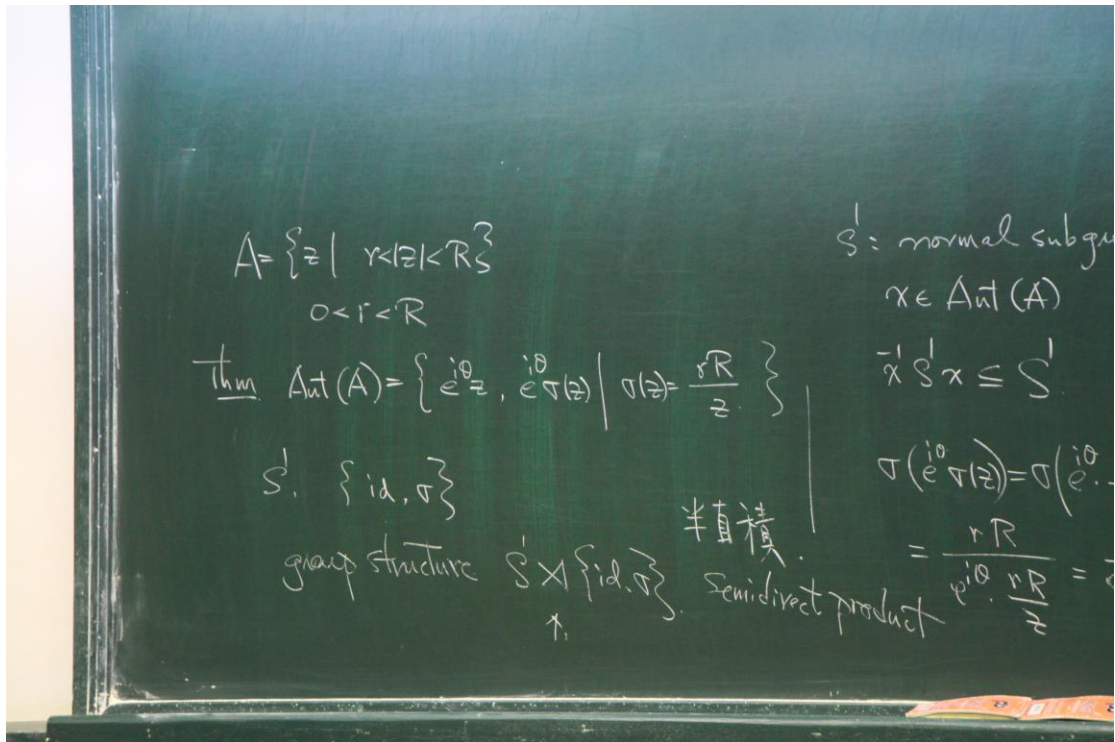 A = {z | r<|z|<R}
0<r<R
Thm. Aut(A) = { e^{iθ}z, e^{iθ}σ(z) | σ(z) = rR/z. }
S¹. {id, σ}
group structure S¹ ⋊ {id, σ}. semidirect product
半直積.
↑
S¹: normal subgr
x ∈ Aut(A)
x⁻¹ S¹ x ≤ S¹.
σ(e^{iθ}σ(z)) = σ(e^{iθ}.
= rR / (e^{iθ}. rR/z) =